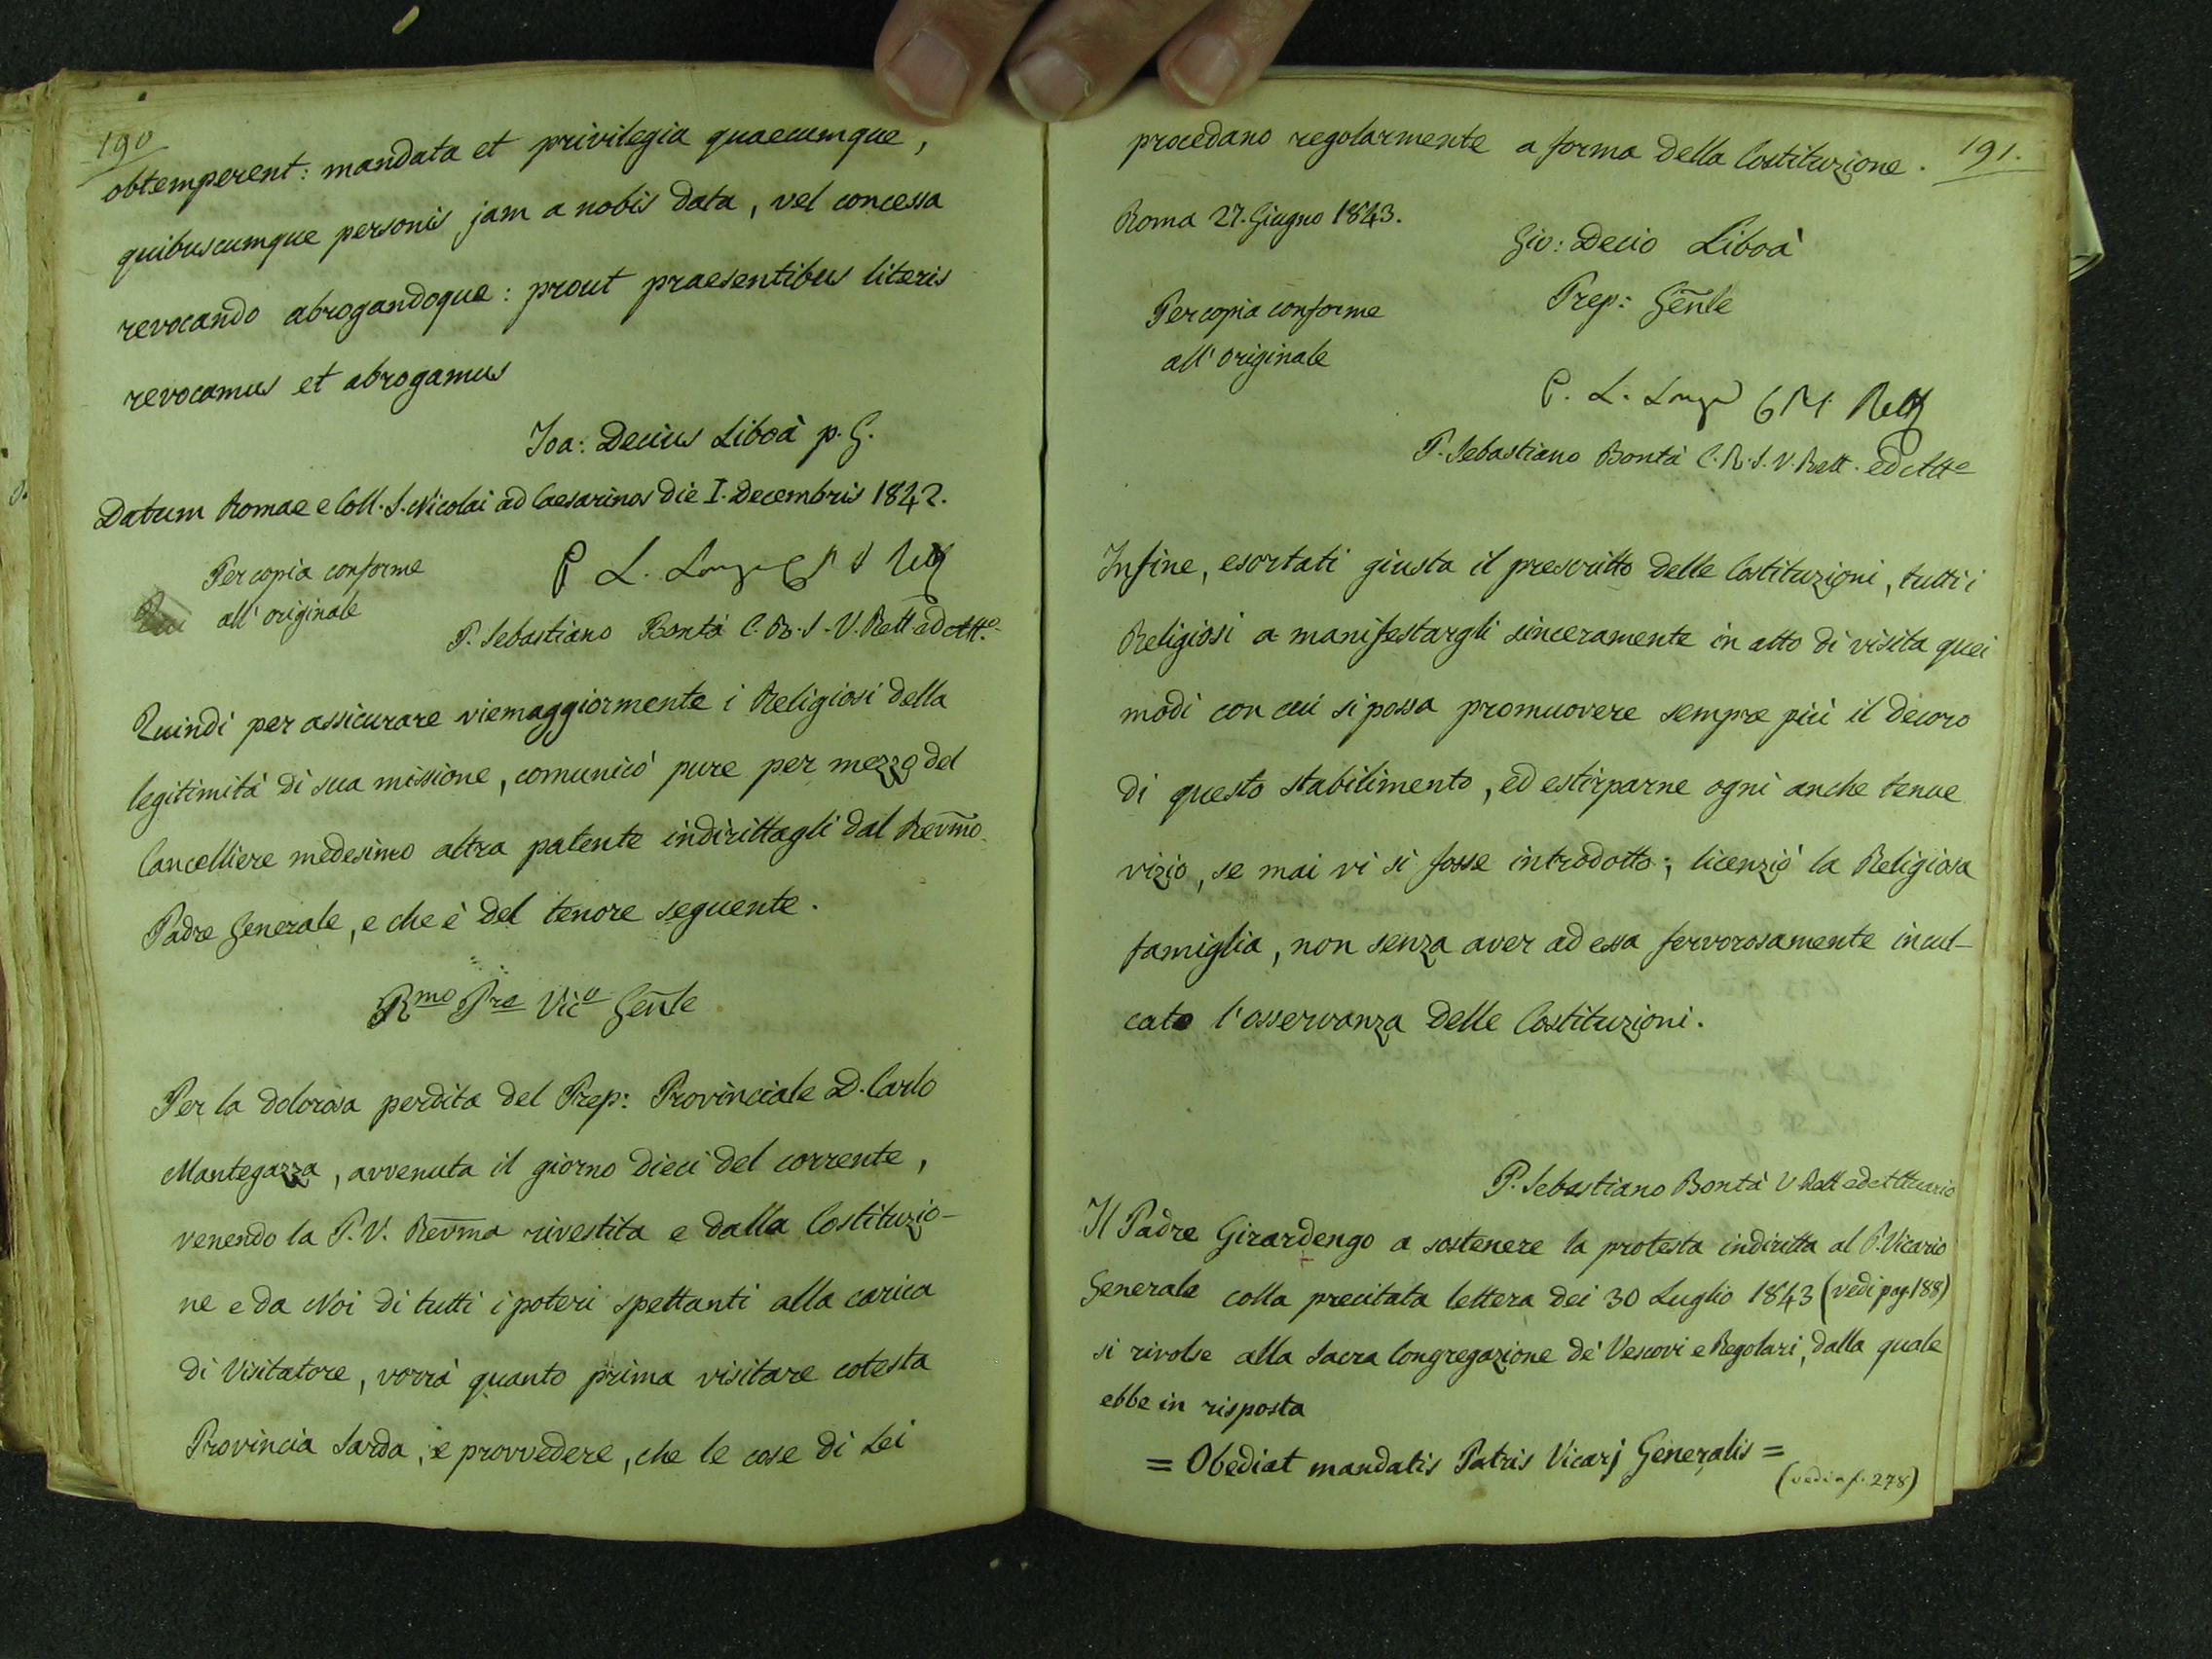 190
obtemperent: mandata et privilegia quaecumque,
quibuscumque personis jam a nobis data, vel concessa
revocando abrogandoque: prout praesentibus literis
revocamus et abrogamus
Joa: Decius Liboà p. G.
Datum Romae e Coll. S. Nicolai ad Caesarinos die I. Decembris 1842.
Per copia conforme
all' originale
P. L. Longa
P. Sebastiano Bontà C. R. S. V. Rett ed Att.o
Quindi per assicurare viemaggiormente i Religiosi della
legitimità di sua missione, comunicò pure per mezzo del
Cancelliere medesimo altra patente indirittagli dal Rev̄mo
Padre Generale, e che è del tenore seguente.
Rmo Pre Vico Gen̄le
Per la dolorosa perdita del Prep: Provinciale D. Carlo
Mantegazza, avvenuta il giorno dieci del corrente,
venendo la P. V. Rev̄ma rivestita e dalla Costituzio-
ne e da Noi di tutti i poteri spettanti alla carica
di Visitatore, vorrà quanto prima visitare cotesta
Provincia Sarda, e provvedere, che le cose di Lei
191.
procedano regolarmente a forma della Costituzione.
Roma 27. Giugno 1843.
Gio: Decio Liboà
Prep: Gen̄le
Per copia conforme
all' originale
P. L. Longa
P. Sebastiano Bontà C. R. S. V. Rett. ed Atto
Infine, esortati giusta il prescritto delle Costituzioni, tutti i
Religiosi a manifestargli sinceramente in atto di visita quei
modi con cui si possa promuovere sempre più il decoro
di questo stabilimento, ed estirparne ogni anche tenue
vizio, se mai vi si fosse introdotto; licenziò la Religiosa
famiglia, non senza aver ad essa fervorosamente incul-
cato l'osservanza delle Costituzioni.
P. Sebastiano Bontà V. Rett ed Attuario
Il Padre Girardengo a sostenere la protesta indiritta al P. Vicario
Generale colla precitata lettera dei 30 Luglio 1843 (vedi pag. 188)
si rivolse alla Sacra Congregazione de' Vescovi e Regolari, dalla quale
ebbe in risposta
= Obediat mandatis Patris Vicarj Generalis =
(vedi a f. 278)